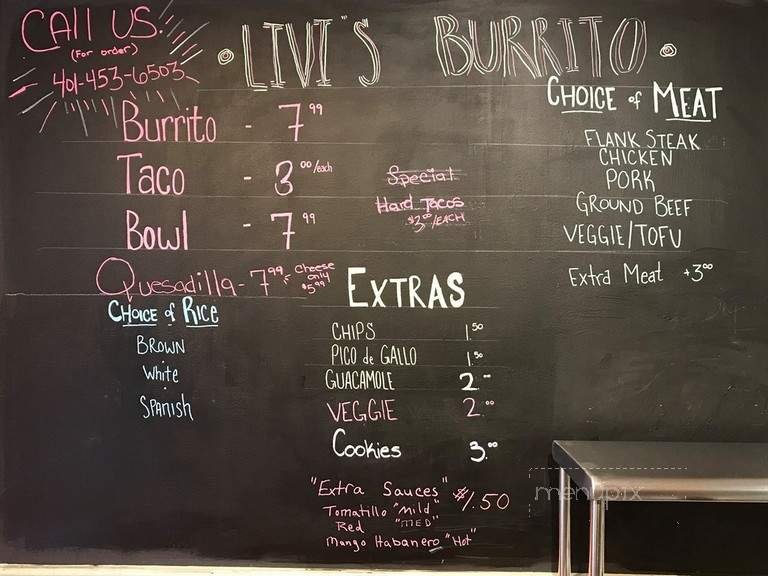 CAll US!
(For order)
401-453-6503
LIVI'S BURRITO
Burrito - 7.99
Taco - 3.00/each
Bowl - 7.99
Quesadilla - 7.99 Cheese only $5.99
Special
Hard Tacos
$3.00/EACH
CHOICE of RICE
BROWN
White
SPANISH
EXTRAS
CHIPS 1.50
PICO de GALLO 1.50
GUACAMOLE 2.00
VEGGIE 2.00
Cookies 3.00
"Extra Sauces" $1.50
Tomatillo "Mild"
Red "MED"
Mango Habanero "Hot"
CHOICE of MEAT
FLANK STEAK
CHICKEN
PORK
GROUND BEEF
VEGGIE/TOFU
Extra Meat +3.00
menupix